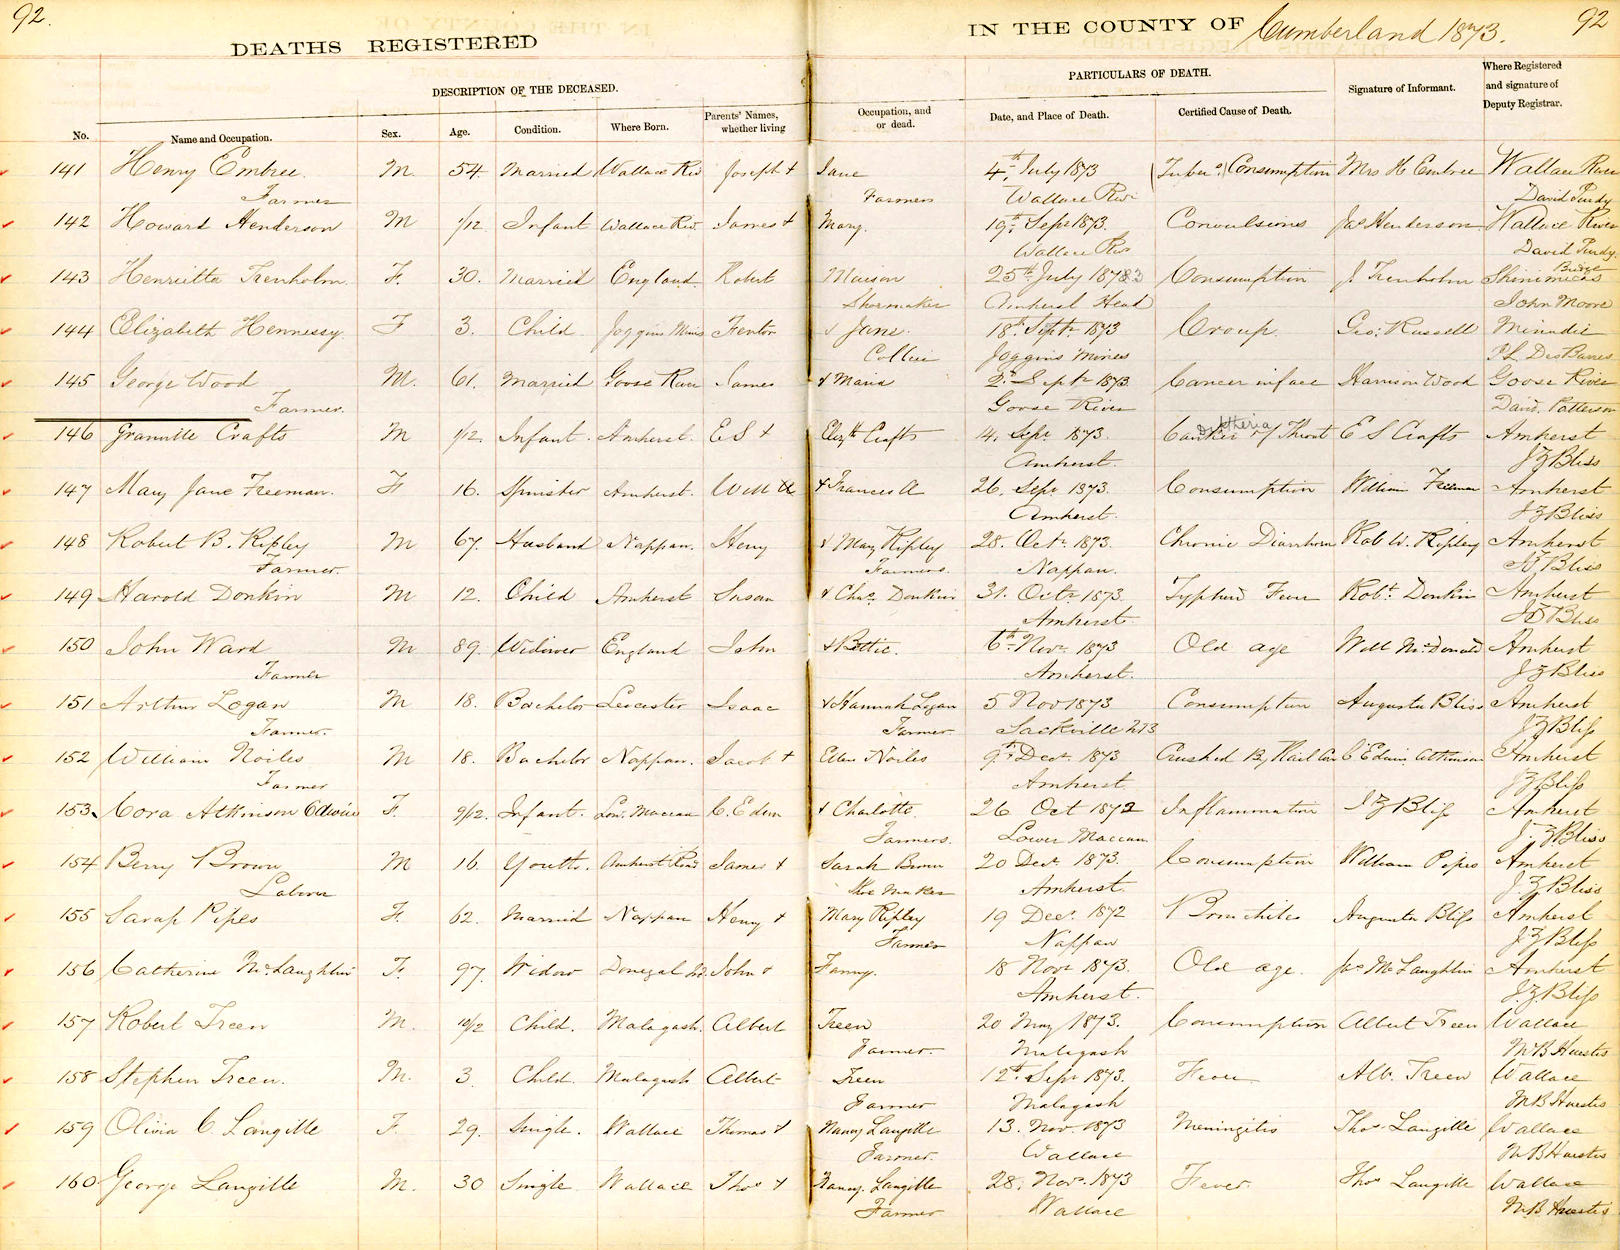 92.
DEATHS REGISTERED
IN THE COUNTY OF Cumberland 1873.
92
DESCRIPTION OF THE DECEASED.
PARTICULARS OF DEATH.
Signature of Informant.
Where Registered and signature of Deputy Registrar.
No. Name and Occupation. Sex. Age. Condition. Where Born. Parents' Names, whether living Occupation, and or dead. Date, and Place of Death. Certified Cause of Death.
141 Henry Embree. M 54. Married Wallace Riv Joseph + Jane 4th July 1873 Consumption Mrs H Embree Wallace River
Farmer Farmers Wallace Riv David Purdy
142 Howard Henderson M 1/12 Infant Wallace Riv. James + Mary. 19th Sept 1873. Convulsions Jas Henderson Wallace River
Wallace Riv David Purdy.
143 Henrietta Trenholm. F. 30. Married England. Robert 25th July 1873 Consumption J. Trenholm Shinimicas Bridge
Shoemaker Amherst Head John Moore
144 Elizabeth Hennessy. F 3. Child. Joggins Mines Fenton & Jane. 18th Septr 1873 Croup. Geo: Russell Minudie
Joggins Mines P L DesBarres
145 George Wood M. 61. Married Goose River James & Maria 2d Septr 1873. Cancer in face Harrison Wood Goose River
Farmer. Goose River David. Patterson
146 Granville Crafts M 1/12. Infant. Amherst. E S + Elizth Crafts 14. Sepr 1873. Canker of Throat E S Crafts Amherst
Amherst. J F Bliss
147 Mary Jane Freeman. F 16. Spinster Amherst. Will & Frances A 26. Sepr 1873. Consumption William Freeman Amherst
Amherst. J F Bliss
148 Robert B. Ripley M 67. Husband Nappan. Henry & Mary Ripley 28. Octr 1873. Chronic Diarrhoea Rob W. Ripley Amherst
Farmer. Farmers. Nappan. J F Bliss
149 Harold Donkin M 12. Child Amherst Susan & Chas. Donkin 31. Octr 1873. Typhoid Fever Robt. Donkin Amherst
Amherst. J F Bliss
150 John Ward M 89. Widower England John & 6th Novr 1873 Old age Will McDonald Amherst
Farmer Amherst. J F Bliss
151 Arthur Logan M 18. Bachelor Leicester Isaac & Hannah Logan 5 Nov 1873 Consumption Augusta Bliss Amherst
Farmer. Farmer Sackville NB J F Bliss
152 William Noiles M 18. Bachelor Nappan. Jacob + Ellen Noiles 9th Decr 1873 Crushed By Rail Car C Edwin Atkinson Amherst
Farmer Amherst J F Bliss
153 Cora Atkinson Edwin F. 9/12. Infant. Low. Maccan C. Edwin & Charlotte. 26 Oct 1872 Inflammation J F Bliss Amherst
Farmers. Lower Maccan J. F Bliss
154 Berry Brown M 16. Youth. Amherst James + Sarah Brown 20 Decr 1873. Consumption William Pipes Amherst
Labour Shoe Maker Amherst. J. F Bliss
155 Sarah Pipes F. 62. Married Nappan Henry + Mary Ripley 19 Decr. 1872 Bronchitis Augusta Bliss Amherst
Farmer Nappan J F Bliss
156 Catherine McLaughlin F. 97. Widow Donegal John & Fanny. 18 Novr 1873. Old age. Jas McLaughlin Amherst
Amherst. J. F Bliss
157 Robert Treen M. 10/12 Child. Malagash. Albert Treen 20 May 1873. Consumption Albert Treen Wallace
Farmer. Malagash M B Huestis
158 Stephen Treen. M. 3. Child. Malagash Albert Treen 12th Sepr 1873. Fever Alb. Treen Wallace
Farmer Malagash M B Huestis
159 Olivia C Langille F. 29. Single. Wallace Thomas & Nancy Langille 13. Nov. 1873 Meningitis Thos Langille Wallace
Farmer. Wallace M B Huestis
160 George Langille M. 30 Single Wallace Thos + Nancy. Langille 28. Nov. 1873 Fever. Thos Langille Wallace
Farmer Wallace M. B Huestis